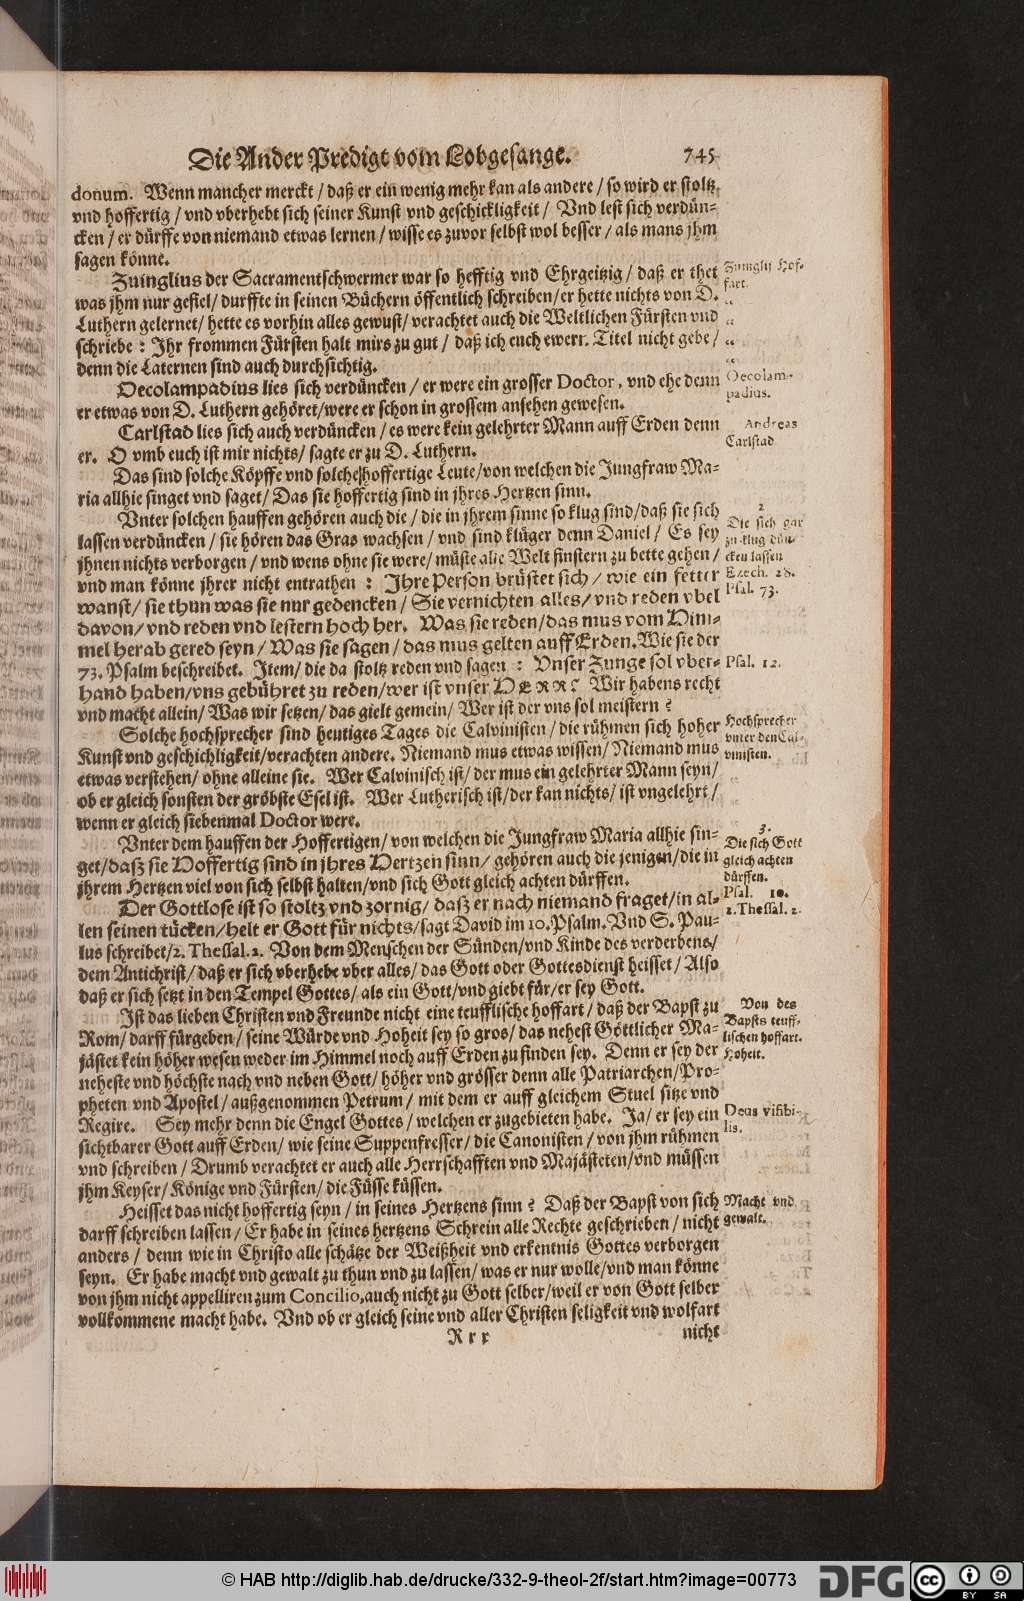 Die Ander Predigt vom Lobgesange. 745
donum. Wenn mancher merckt / daß er ein wenig mehr kan als andere / so wird er stoltz
vnd hoffertig / vnd vberhebt sich seiner Kunst vnd geschickligkeit / Vnd lest sich verdün-
cken / er dürffe von niemand etwas lernen / wisse es zuvor selbst wol besser / als mans jhm
sagen könne.
Zuinglius der Sacramentschwermer war so hefftig vnd Ehrgeitzig / daß er thet
Zuinglij Hof-
fart.
was jhm nur gefiel / durffte in seinen Büchern öffentlich schreiben / er hette nichts von D.
Luthern gelernet / hette es vorhin alles gewust / verachtet auch die Weltlichen Fürsten vnd
schriebe : Ihr frommen Fürsten halt mirs zu gut / daß ich euch ewerr. Titel nicht gebe /
denn die Laternen sind auch durchsichtig.
Oecolampadius lies sich verdüncken / er were ein grosser Doctor, vnd ehe denn
Oecolam-
padius.
er etwas von D. Luthern gehöret / were er schon in grossem ansehen gewesen.
Carlstad lies sich auch verdüncken / es were kein gelehrter Mann auff Erden denn
Andreas
Carlstad
er. O vmb euch ist mir nichts / sagte er zu D. Luthern.
Das sind solche Köpffe vnd solche hoffertige Leute / von welchen die Jungfraw Ma-
ria allhie singet vnd saget / Das sie hoffertig sind in jhres Hertzen sinn.
Vnter solchen hauffen gehören auch die / die in jhrem sinne so klug sind / daß sie sich
2
Die sich gar
zu klug dün-
cken lassen
Ezech. 28.
Psal. 73.
lassen verdüncken / sie hören das Gras wachsen / vnd sind klüger denn Daniel / Es sey
jhnen nichts verborgen / vnd wens ohne sie were / müste alle Welt finstern zu bette gehen /
vnd man könne jhrer nicht entrathen : Ihre Person brüstet sich / wie ein fetter
wanst / sie thun was sie nur gedencken / Sie vernichten alles / vnd reden vbel
davon / vnd reden vnd lestern hoch her. Was sie reden / das mus vom Him-
mel herab gered seyn / Was sie sagen / das mus gelten auff Erden. Wie sie der
73. Psalm beschreibet. Item / die da stoltz reden vnd sagen : Vnser Zunge sol vber-
Psal. 12.
hand haben / vns gebühret zu reden / wer ist vnser HERR? Wir habens recht
vnd macht allein / Was wir setzen / das gielt gemein / Wer ist der vns sol meistern ?
Solche hochsprecher sind heutiges Tages die Calvinisten / die rühmen sich hoher
Hochsprecher
vnter den Cal-
vinisten.
Kunst vnd geschichligkeit / verachten andere. Niemand mus etwas wissen / Niemand mus
etwas verstehen / ohne alleine sie. Wer Calvinisch ist / der mus ein gelehrter Mann seyn /
ob er gleich sonsten der gröbste Esel ist. Wer Lutherisch ist / der kan nichts / ist vngelehrt /
wenn er gleich siebenmal Doctor were.
Vnter dem hauffen der Hoffertigen / von welchen die Jungfraw Maria allhie sin-
3.
Die sich Gott
gleich achten
dürffen.
Psal. 10.
2. Thessal. 2.
get / daß sie Hoffertig sind in jhres Hertzen sinn / gehören auch die jenigen / die in
jhrem Hertzen viel von sich selbst halten / vnd sich Gott gleich achten dürffen.
Der Gottlose ist so stoltz vnd zornig / daß er nach niemand fraget / in al-
len seinen tücken / helt er Gott für nichts / sagt David im 10. Psalm. Vnd S. Pau-
lus schreibet / 2. Thessal. 2. Von dem Menschen der Sünden / vnd Kinde des verderbens /
dem Antichrist / daß er sich vberhebe vber alles / das Gott oder Gottesdienst heisset / Also
daß er sich setzt in den Tempel Gottes / als ein Gott / vnd giebt für / er sey Gott.
Ist das lieben Christen vnd Freunde nicht eine teufflische hoffart / daß der Bapst zu
Von des
Bapsts teuff-
lischen hoffart.
Hoheit.
Rom / darff fürgeben / seine Würde vnd Hoheit sey so gros / das nehest Göttlicher Ma-
jästet kein höher wesen weder im Himmel noch auff Erden zu finden sey. Denn er sey der
neheste vnd höchste nach vnd neben Gott / höher vnd grösser denn alle Patriarchen / Pro-
pheten vnd Apostel / außgenommen Petrum / mit dem er auff gleichem Stuel sitze vnd
Regire. Sey mehr denn die Engel Gottes / welchen er zugebieten habe. Ja / er sey ein
Deus visibi-
lis.
sichtbarer Gott auff Erden / wie seine Suppenfresser / die Canonisten / von jhm rühmen
vnd schreiben / Drumb verachtet er auch alle Herrschafften vnd Majästeten / vnd müssen
jhm Keyser / Könige vnd Fürsten / die Füsse küssen.
Heisset das nicht hoffertig seyn / in seines Hertzens sinn ? Daß der Bapst von sich
Macht vnd
gewalt.
darff schreiben lassen / Er habe in seines hertzens Schrein alle Rechte geschrieben / nicht
anders / denn wie in Christo alle schätze der Weißheit vnd erkentnis Gottes verborgen
seyn. Er habe macht vnd gewalt zu thun vnd zu lassen / was er nur wolle / vnd man könne
von jhm nicht appelliren zum Concilio, auch nicht zu Gott selber / weil er von Gott selber
vollkommene macht habe. Vnd ob er gleich seine vnd aller Christen seligkeit vnd wolfart
Rrr nicht
© HAB http://diglib.hab.de/drucke/332-9-theol-2f/start.htm?image=00773
DFG
cc BY SA